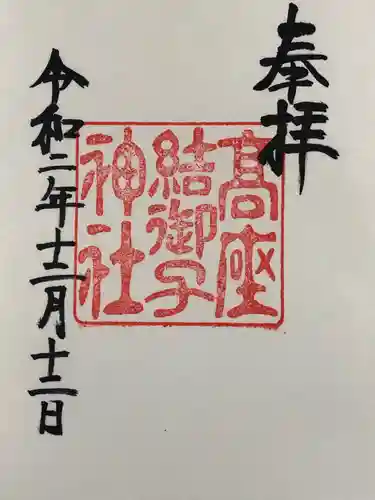 奉拝
高座
結御子
神社
令和二年十二月十二日